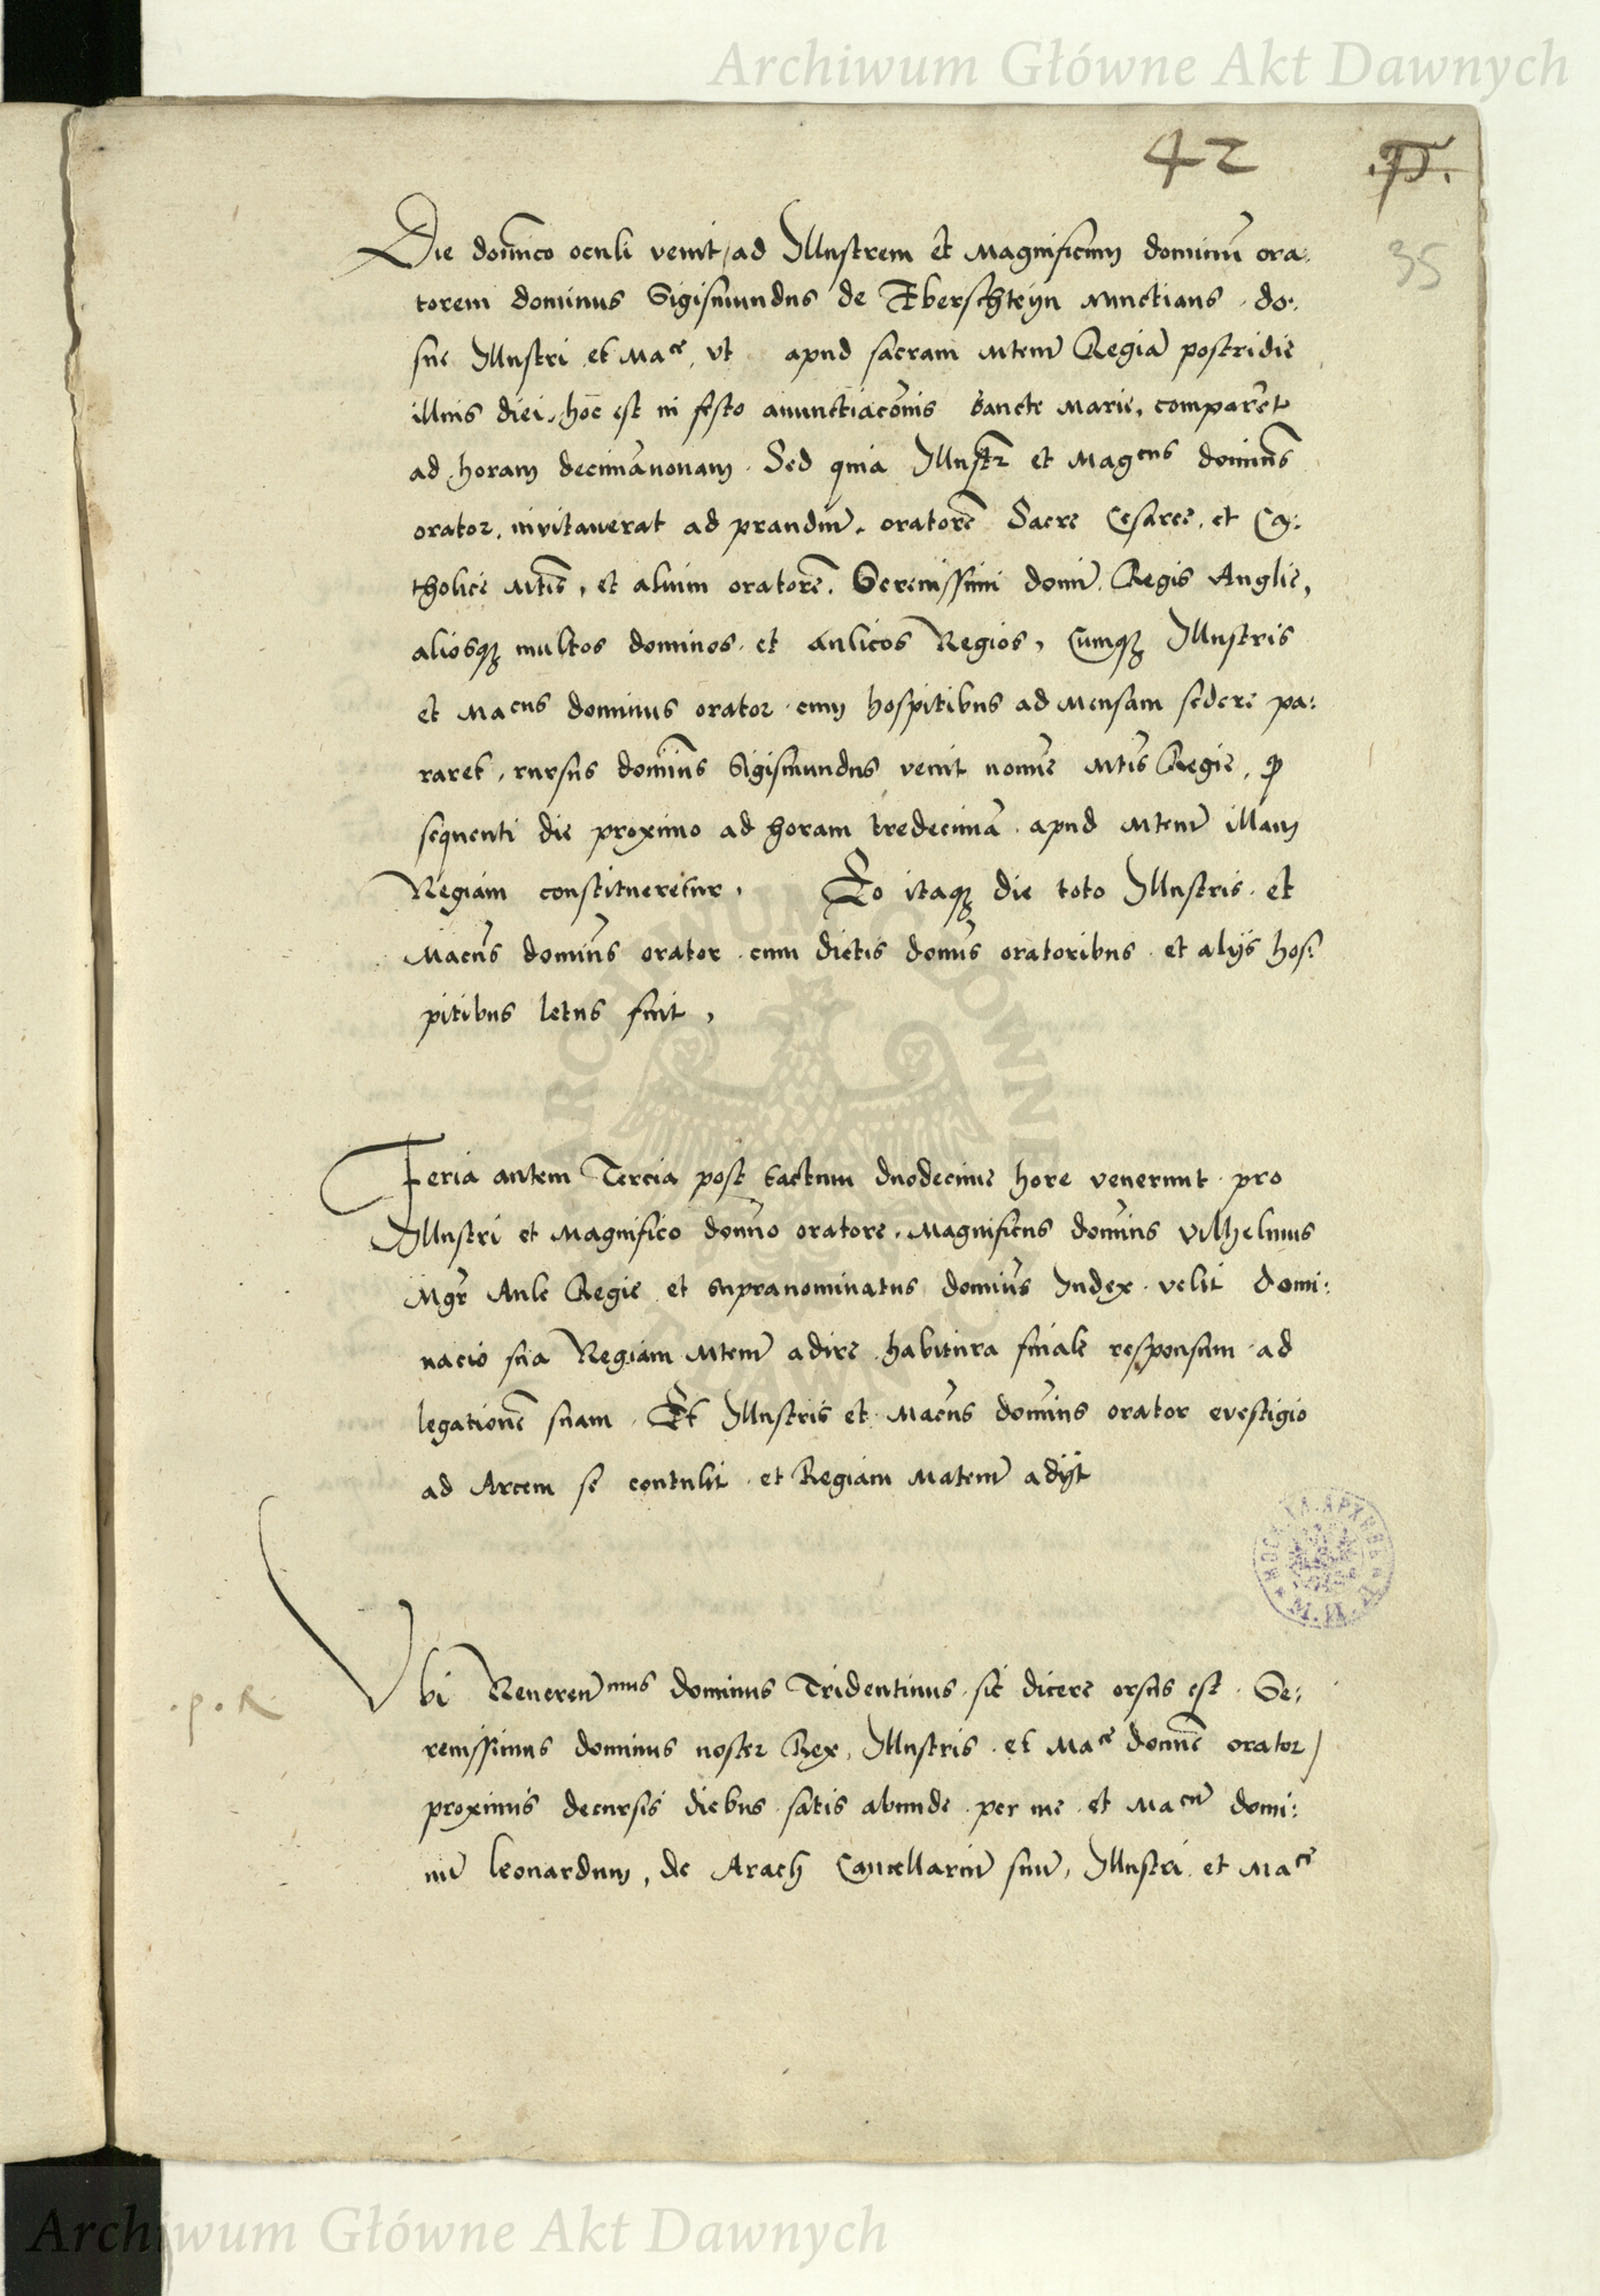 Archiwum Główne Akt Dawnych
42
35
Die dom̄ico oculi venit / ad Illustrem et Magnificum dominū ora:
torem dominus Sigismundus de Eberschteyn nunctians . do:
sue Illustri et Mace, vt apud sacram Mtem̄ Regiā postridie
illius diei, hoc est in festo anunctiacōnis Sancte Marie, comparēt
ad horam decimānonam . Sed quia Illustr̄ et Magcus dominūs
orator, invitauerat ad prandiū, oratorē Sacre Cesaree, et Ca:
tholice Mtīs, et alium oratorē, Serenissimi domī. Regis Anglie,
aliosqꝫ multos dominos et aulicos Regios, Cumqꝫ Illustris
et Macus dominus orator cum hospitibus ad Mensam sedere pa:
raret, rursus dominūs Sigismundus venit nomīe Mtīs Regie, ꝙ
sequenti die proximo ad horam tredecimā apud Mtem̄ illam
Regiam constitueretur, Eo itaqꝫ die toto Illustris et
Macūs domin̄s orator cum dictis domīs oratoribus et alijs hos:
pitibus letus fuit,
Feria autem Tercia post tactum duodecime hore venerunt pro
Illustri et Magnifico dom̄no oratore, Magnificus domīns Vilhelmus
Mgr̄ Aule Regie et supranominatus domīus Iudex velit domi:
nacio sua Regiam Mtem̄ adire habitura finale responsum ad
legationē suam . Et Illustris et Macūs domīns orator evestigio
ad Arcem se contulit et Regiam Matem̄ adijt
.p.R.
Vbi Reueren̄mus dominus Tridentinus sic dicere orsus est . Se:
renissimus dominus noster Rex, Illustris et Mace domīe orator /
proximis decursis diebus satis abunde per me et Macū domi:
nū Leonardum, de Arach Cancellariū suū, Illustri et Mace
Archiwum Główne Akt Dawnych